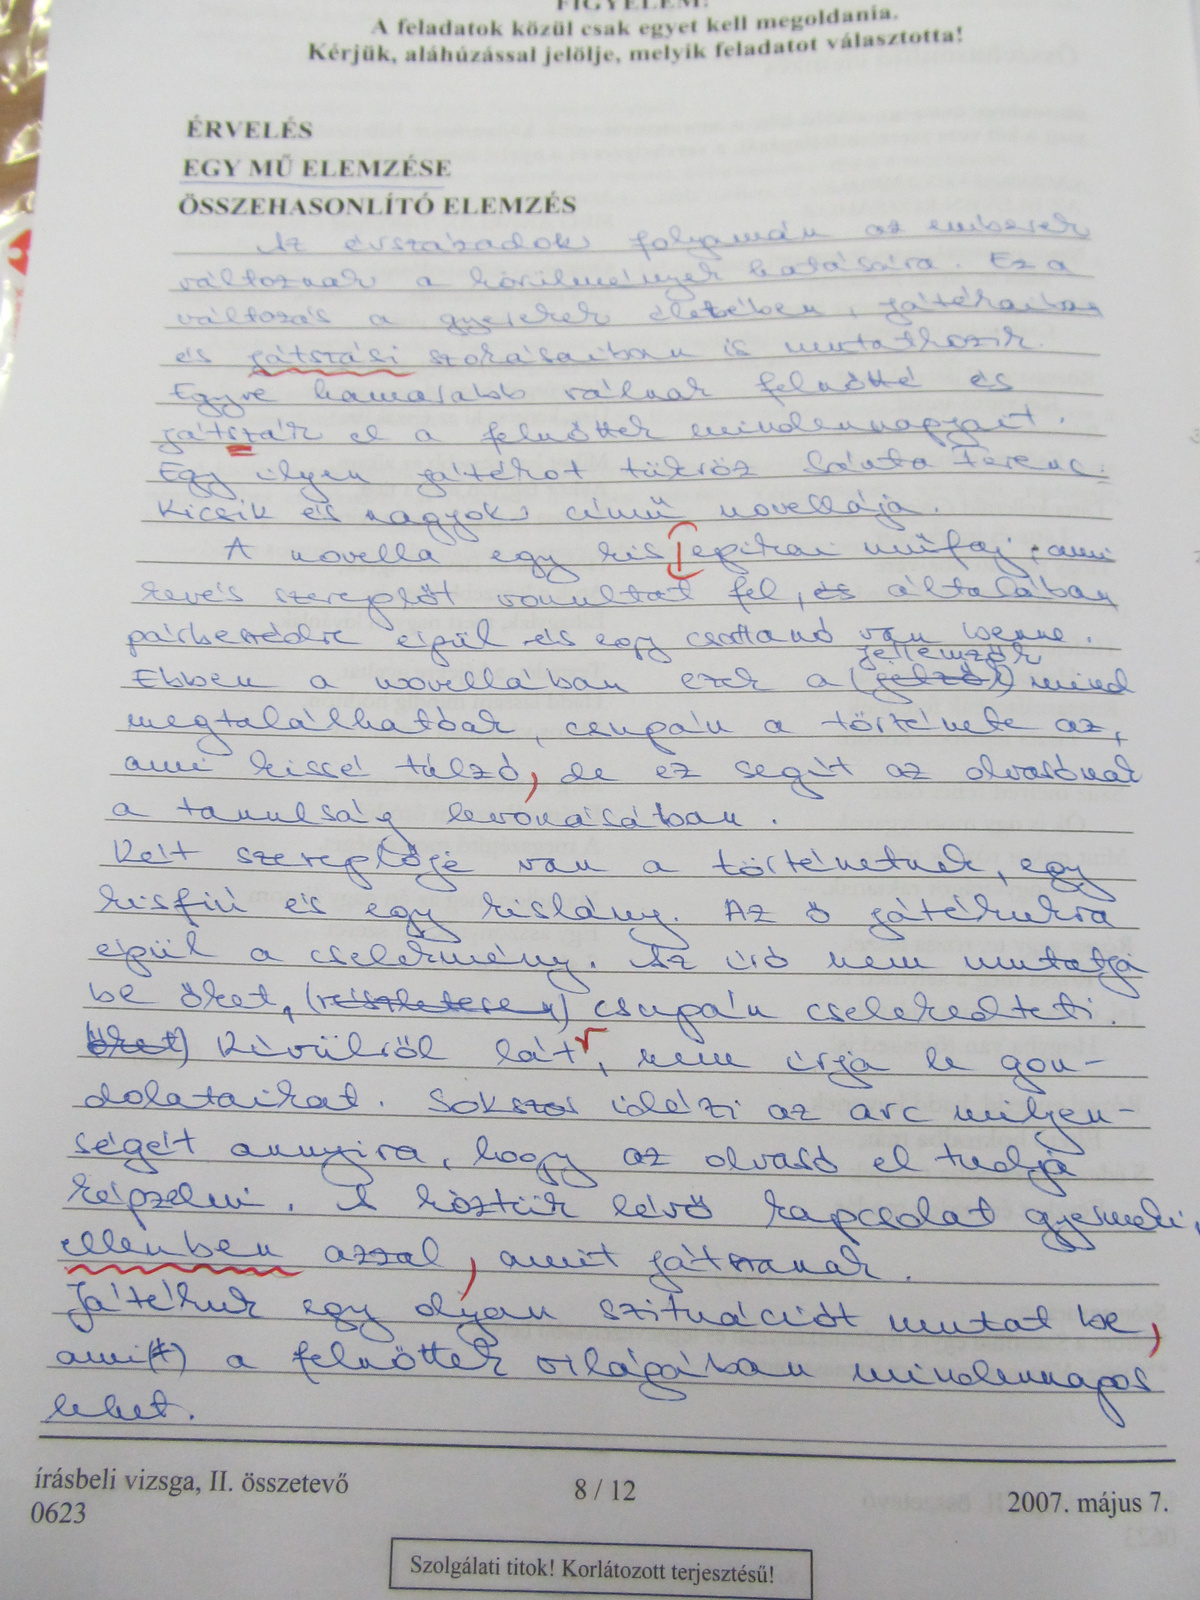 FIGYELEM!
A feladatok közül csak egyet kell megoldania.
Kérjük, aláhúzással jelölje, melyik feladatot választotta!
ÉRVELÉS
EGY MŰ ELEMZÉSE
ÖSSZEHASONLÍTÓ ELEMZÉS
Az évszázadok folyamán az emberek
változnak a körülmények hatására. Ez a
változás a gyerekek életében, játékaiban
és játszási szokásaiban is mutatkozik.
Egyre hamarabb válnak felnőtté és
játszák el a felnőttek mindennapjait.
Egy ilyen játékot tükröz Sánta Ferenc:
Kicsik és nagyok című novellája.
A novella egy kis epikai műfaj, ami
kevés szereplőt vonultat fel, és általában
párbeszédre épül és egy csattanó van benne.
jellemzők
Ebben a novellában ezek a (jelzők) mind
megtalálhatóak, csupán a története az,
ami kissé túlzó, de ez segít az olvasónak
a tanulság levonásában.
Két szereplője van a történetnek, egy
kisfiú és egy kislány. Az ő játékukra
épül a cselekmény. Az író nem mutatja
be őket, (részletesen) csupán cselekedteti.
(őket) Kívülről lát, nem írja le gon-
dolataikat. Sokszor idézi az arc milyen-
ségét annyira, hogy az olvasó el tudja
képzelni. A köztük lévő kapcsolat gyermeki,
ellenben azzal, amit játszanak.
Játékuk egy olyan szituációt mutat be,
ami(t) a felnőttek világában mindennapos
lehet.
írásbeli vizsga, II. összetevő
8 / 12
2007. május 7.
0623
Szolgálati titok! Korlátozott terjesztésű!